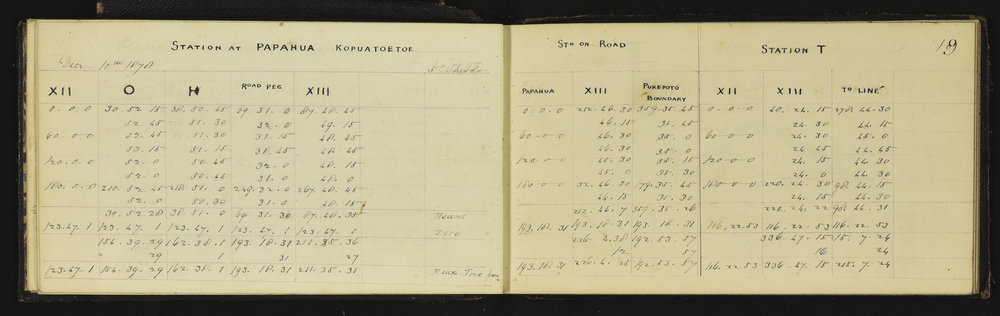 STATION AT PAPAHUA KOPUATOETOE
Decr 10th 1878
XII O H ROAD PEG XIII
0. 0. 0 30. 52. 15 38. 50. 45 69. 31. 0 87. 48. 45
52. 45 51. 30 32. 0 49. 15
60. 0. 0 52. 45 51. 30 31. 15 48. 45
53. 15 51. 15 31. 45 48. 45
120. 0. 0 52. 0 50. 45 32. 0 48. 15
52. 0 50. 45 31. 0 48. 0
180. 0. 0 210. 52. 45 218. 51. 0 249. 32. 0 267. 48. 45
52. 0 50. 30 31. 0 48. 15
30. 52. 28 38. 51. 0 69. 31. 30 87. 48. 35 Means
123. 47. 1 123. 47. 1 123. 47. 1 123. 47. 1 123. 47. 0 Zero
154. 39. 29 162. 38. 1 193. 18. 31 211. 35. 36
29 1 31 27
123. 47. 1 154. 39. 29 162. 38. 1 193. 18. 31 211. 35. 31 Means True
19
STN ON ROAD STATION T
PAPAHUA XIII PUKEPOTO BOUNDARY XII XIII TO LINE
0. 0. 0 212. 46. 30 359. 35. 45 0. 0. 0 40. 24. 15 278. 44. 30
46. 15 35. 45 24. 30 44. 15
60. 0. 0 46. 30 35. 0 60. 0. 0 24. 30 45. 0
46. 30 35. 0 24. 45 44. 45
120. 0. 0 45. 30 35. 15 120. 0. 0 24. 15 44. 30
45. 0 35. 30 24. 0 44. 30
180. 0. 0 32. 46. 30 179. 35. 45 180. 0. 0 220. 24. 30 98. 44. 15
46. 15 35. 30 24. 15 44. 30
212. 46. 7 359. 35. 26 220. 24. 22 98. 44. 31
193. 18. 31 193. 18. 31 193. 18. 31 116. 22. 53 116. 22. 53 116. 22. 53
226. 2. 38 192. 53. 57 336. 47. 15 215. 7. 24
12 57 16 24
193. 18. 31 226. 4. 25 192. 53. 57 116. 22. 53 336. 47. 15 215. 7. 24